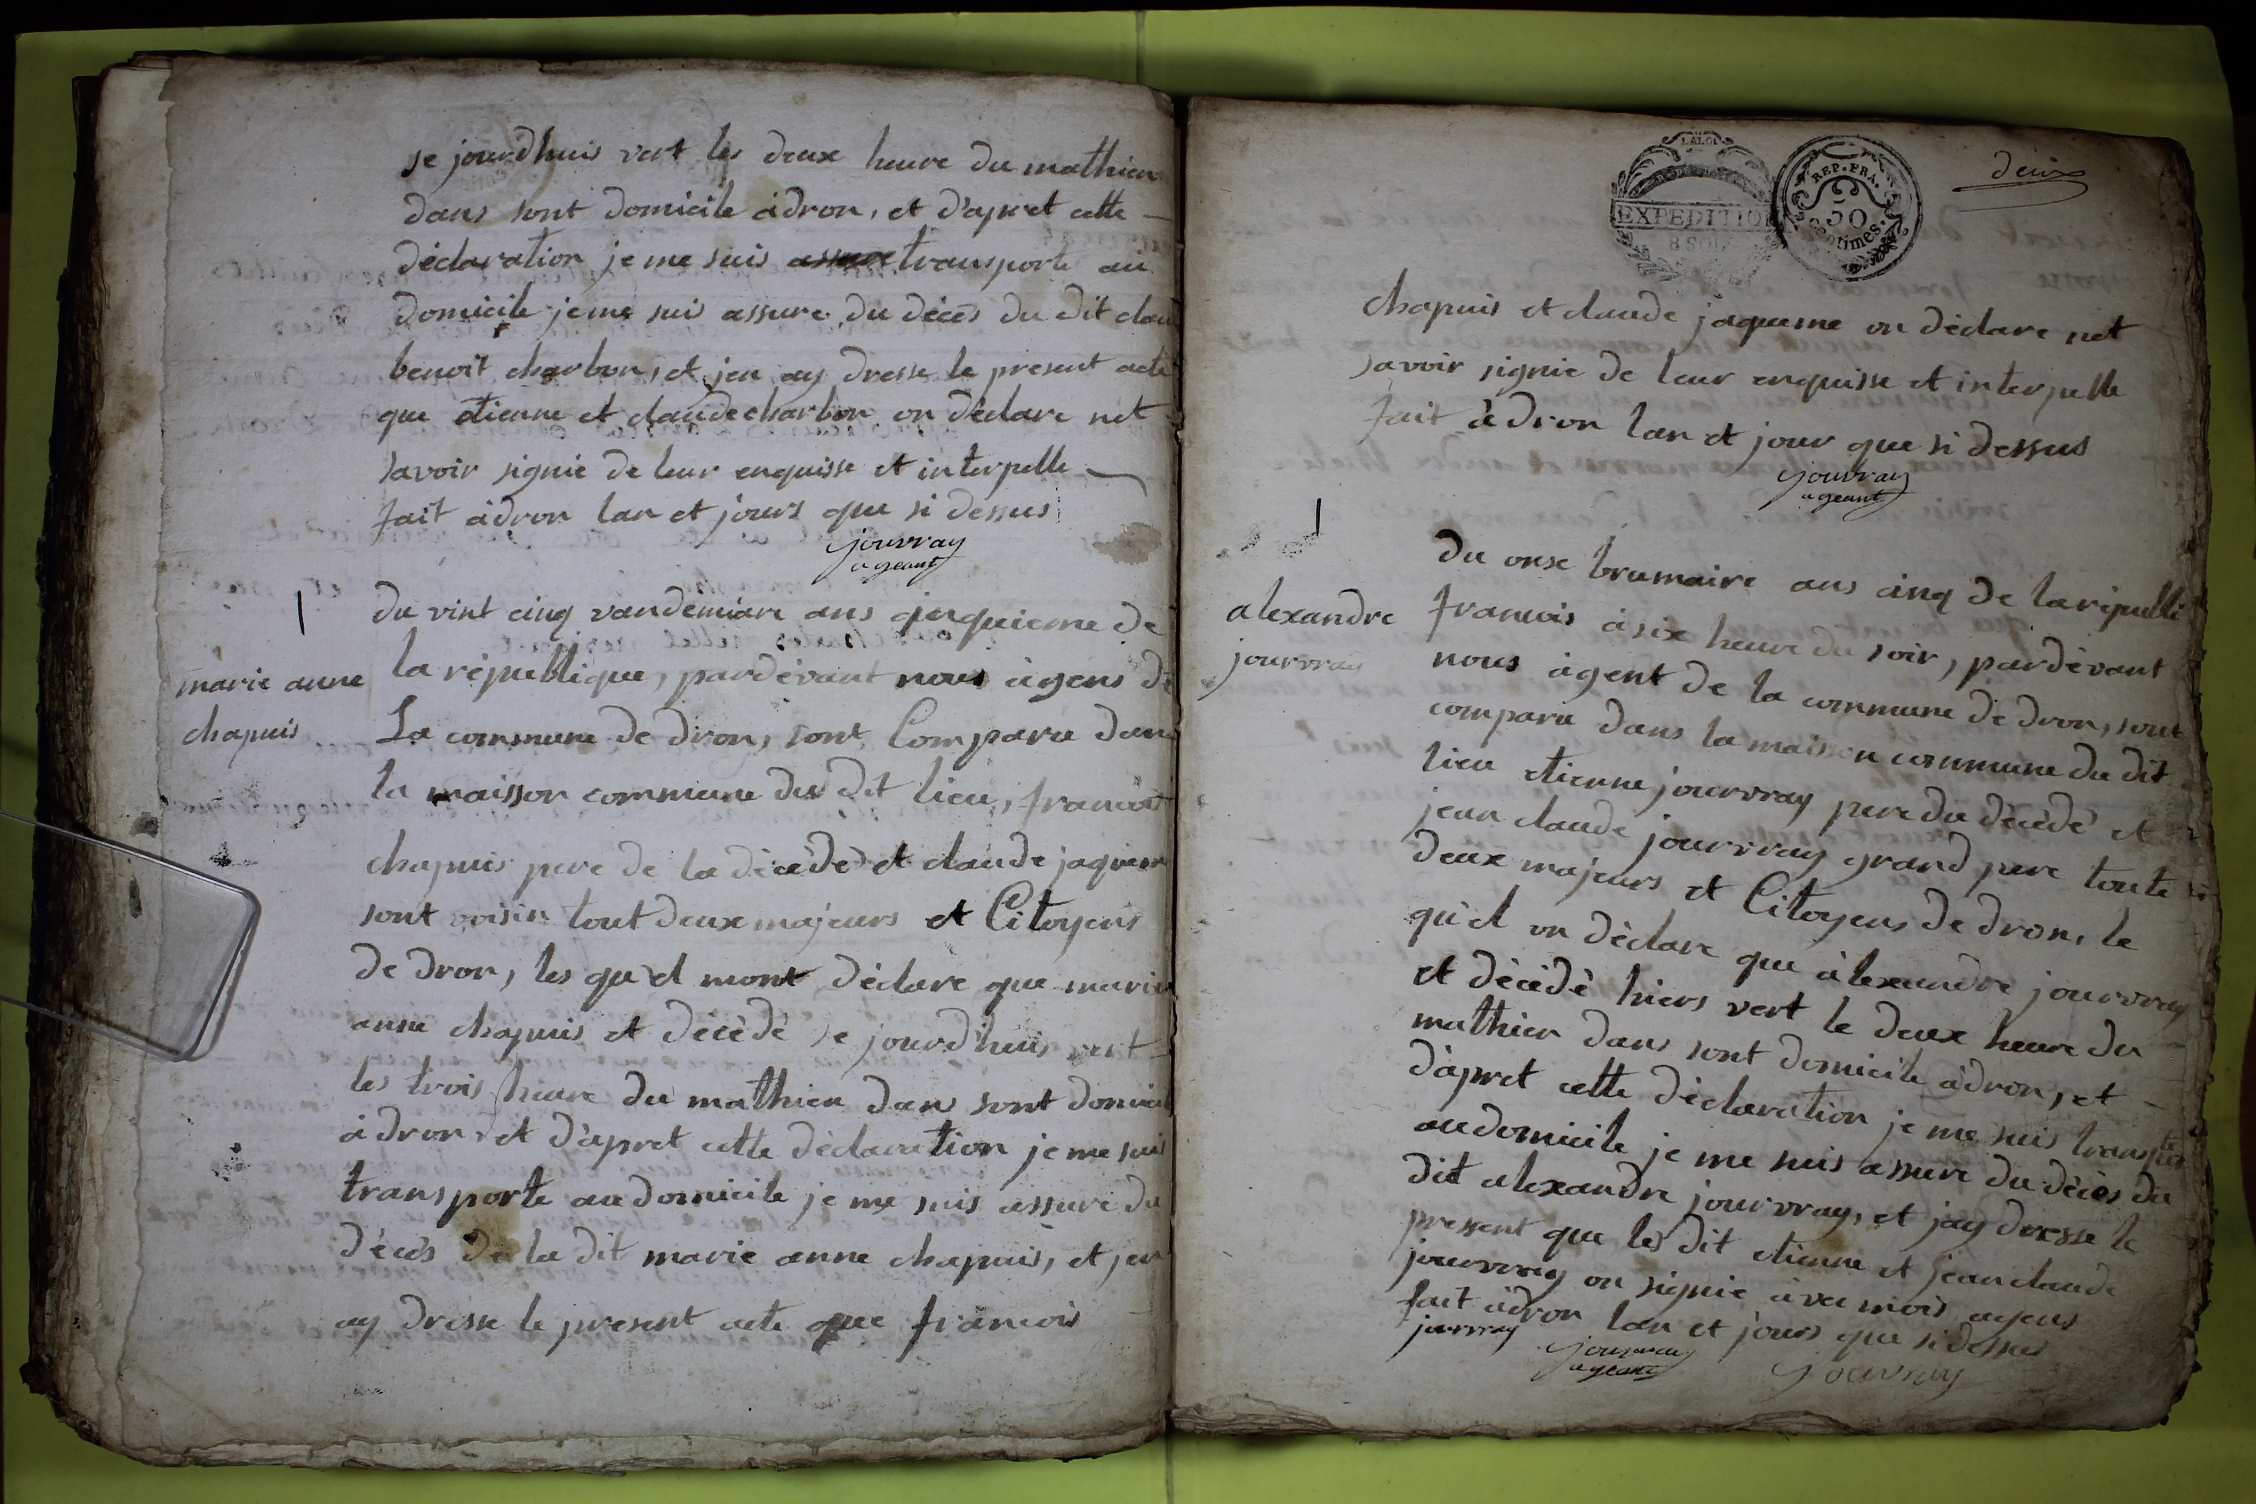 se jourdhuis vert les deux heure du mathien
dans sont domicile àdron, et d'apret cette
déclaration je me suis transporte au
domicile je me suis assure du décès du dit clau
benoit charbon, et jen ay dresse le present acte
que etienne et claude charbon on déclare net
savoir signie de leur enquisse et interpelle
fait àdron lan et jours que si dessus
jouvray
ageant
du vint cinq vandemiare ans cinquieme de
marie anne
chapuis
la république, pardévant nous àgens de
La commune de dron, sont Comparu dans
la maisson commune du dit lieu, francois
chapuis pere de la décèdè et claude jaqueme
sont voisin tout deux majeurs et Citoyens
de dron, les qu'el mont déclare que marie
anne chapuis et décèdè se jourd'huis vert
les trois heure du mathien dans sont domicil
àdron et d'apret cette déclaration je me suis
transporte au domicile je me suis assure du
décès de la dit marie anne chapuis, et jen
ay dresse le present acte que francois
L A LOI
EXPEDITION
8 SOLS
REP. FRA.
50
centimes
deux
chapuis et claude jaqueme on déclare net
savoir signie de leur enquisse et interpelle
fait àdron lan et jour que si dessus
jouvray
ageant
alexandre
jouvray
du onse brumaire ans cinq de la républi
francois à six heure du soir, pardévant
nous àgent de la commune de dron, sont
comparu dans la maisson commune du dit
lieu etienne jouvray pere du décèdè et
jean claude jouvray grand pere toute
deux majeurs et Citoyens de dron, le
qu'el on déclare que àlexandre jouvray
et décèdè hiers vert le deux heure du
mathien dans sont domicile àdron, et
d'apret cette déclaration je me suis transpor
au domicile je me suis assure du décès du
dit alexandre jouvray, et jay dresse le
present que les dit etienne et jean claude
jouvray on signie avec mois agens
fait àdron lan et jours que si dessus
jouvray
jouvray
ageant
jouvray